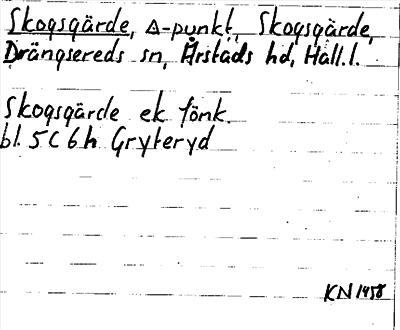 Skogsgärde, Δ-punkt, Skogsgärde,
Drängsereds sn, Årstads hd, Hall.l.
Skogsgärde ek förk.
bl. 5C6h Gryteryd
KN 1958